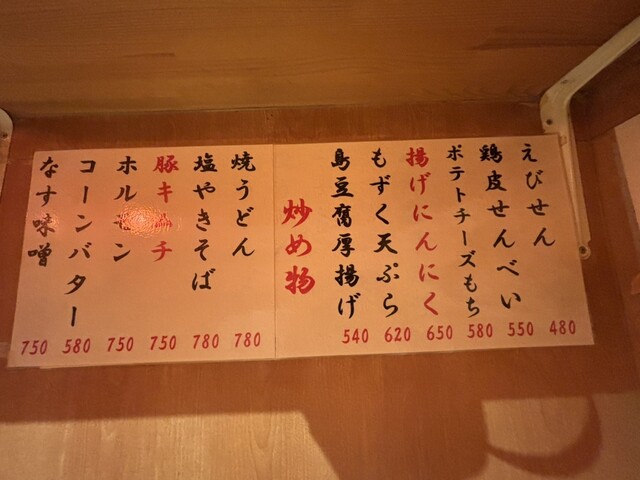 えびせん
480
鶏皮せんべい
550
ポテトチーズもち
580
揚げにんにく
650
もずく天ぷら
620
島豆腐厚揚げ
540
炒め物
焼うどん
780
塩やきそば
780
豚キムチ
750
ホルモン
750
コーンバター
580
なす味噌
750